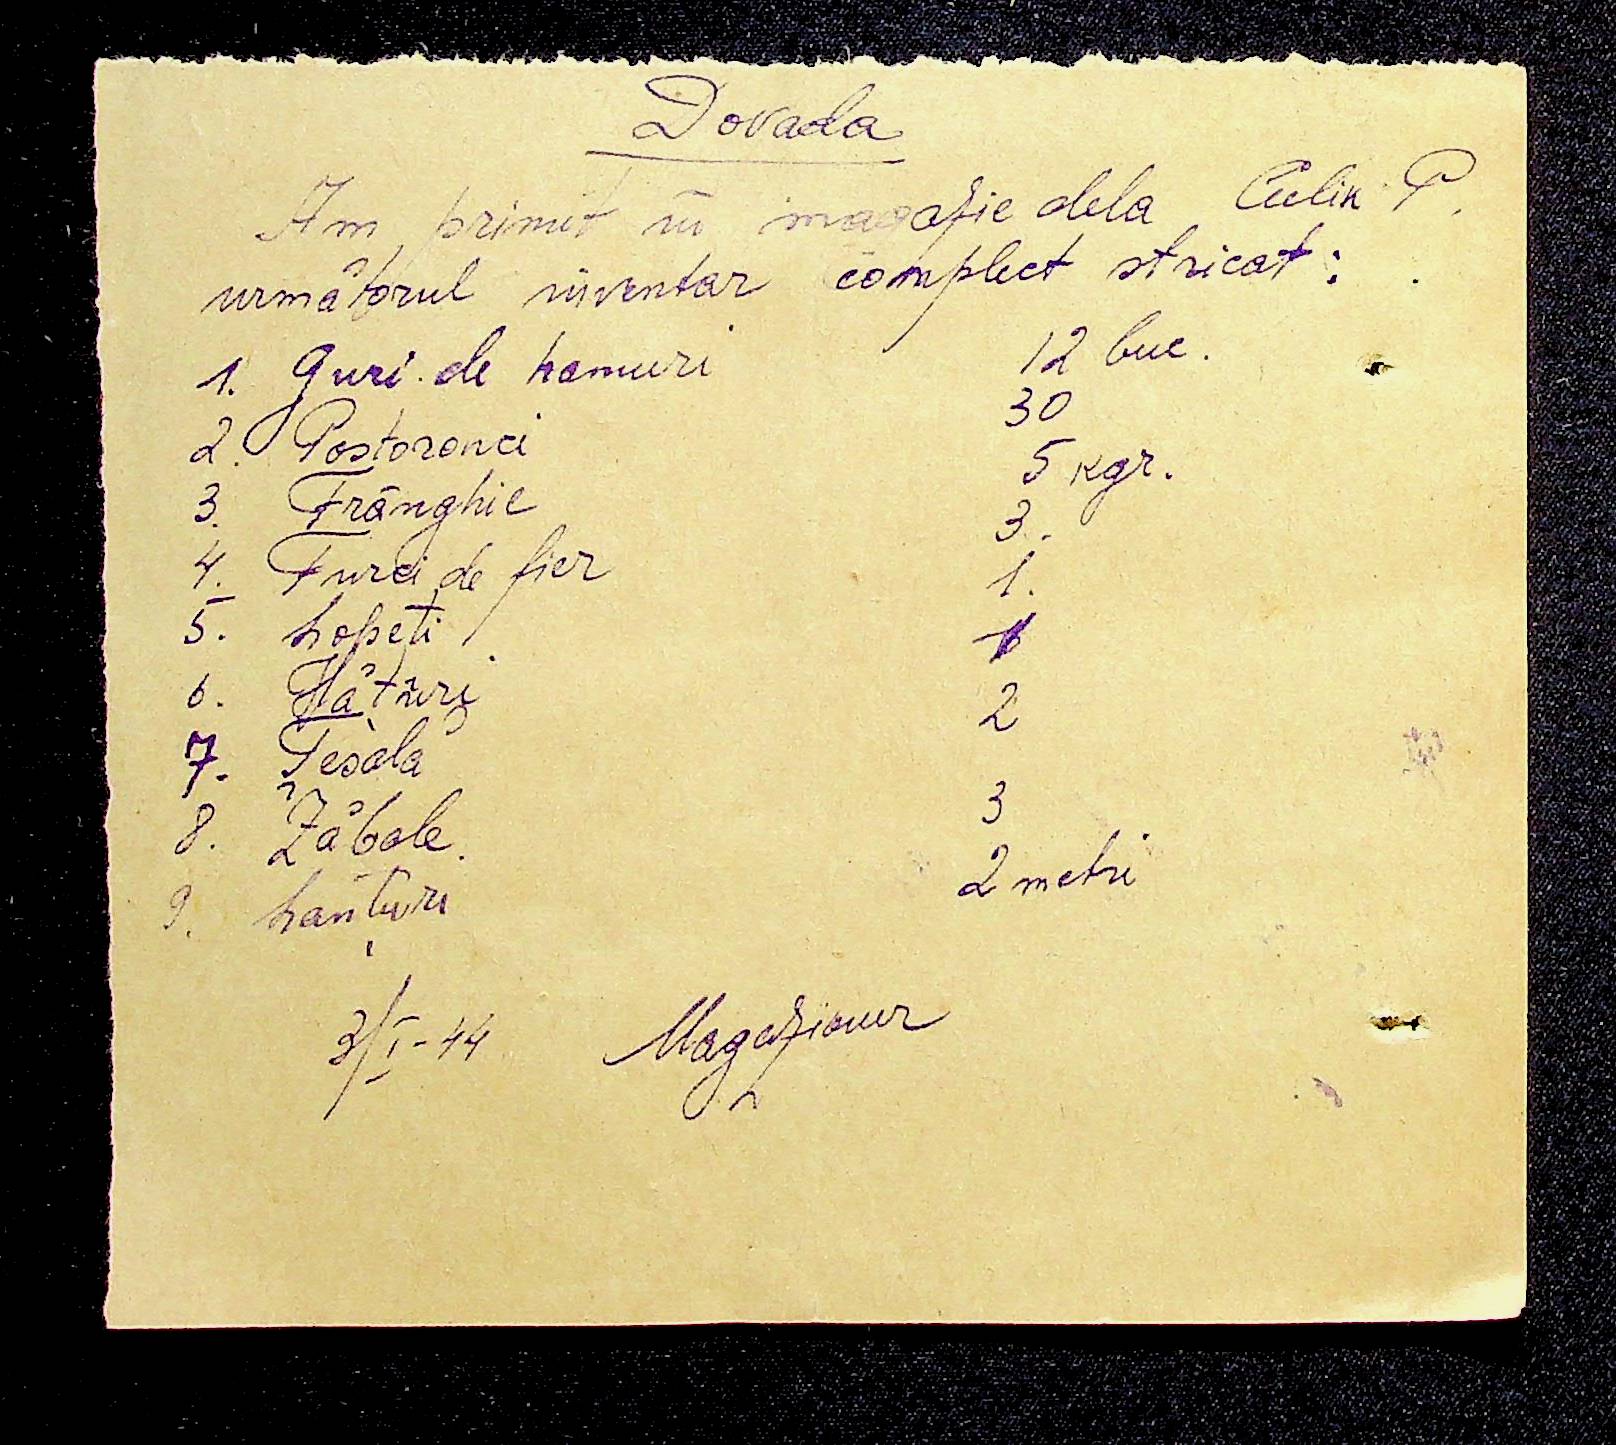 Dovada
Am primit în magazie dela Culin P.
următorul inventar complect stricat:
1. Guri de hamuri 12 buc.
2. Postoronci 30
3. Frânghie 5 kgr.
4. Furci de fier 3.
5. Lopeți 1.
6. Hățuri
7. Țesala 2
8. Zăbale. 3
9. Lanțuri 2 metri
3/I-44 Magazioner